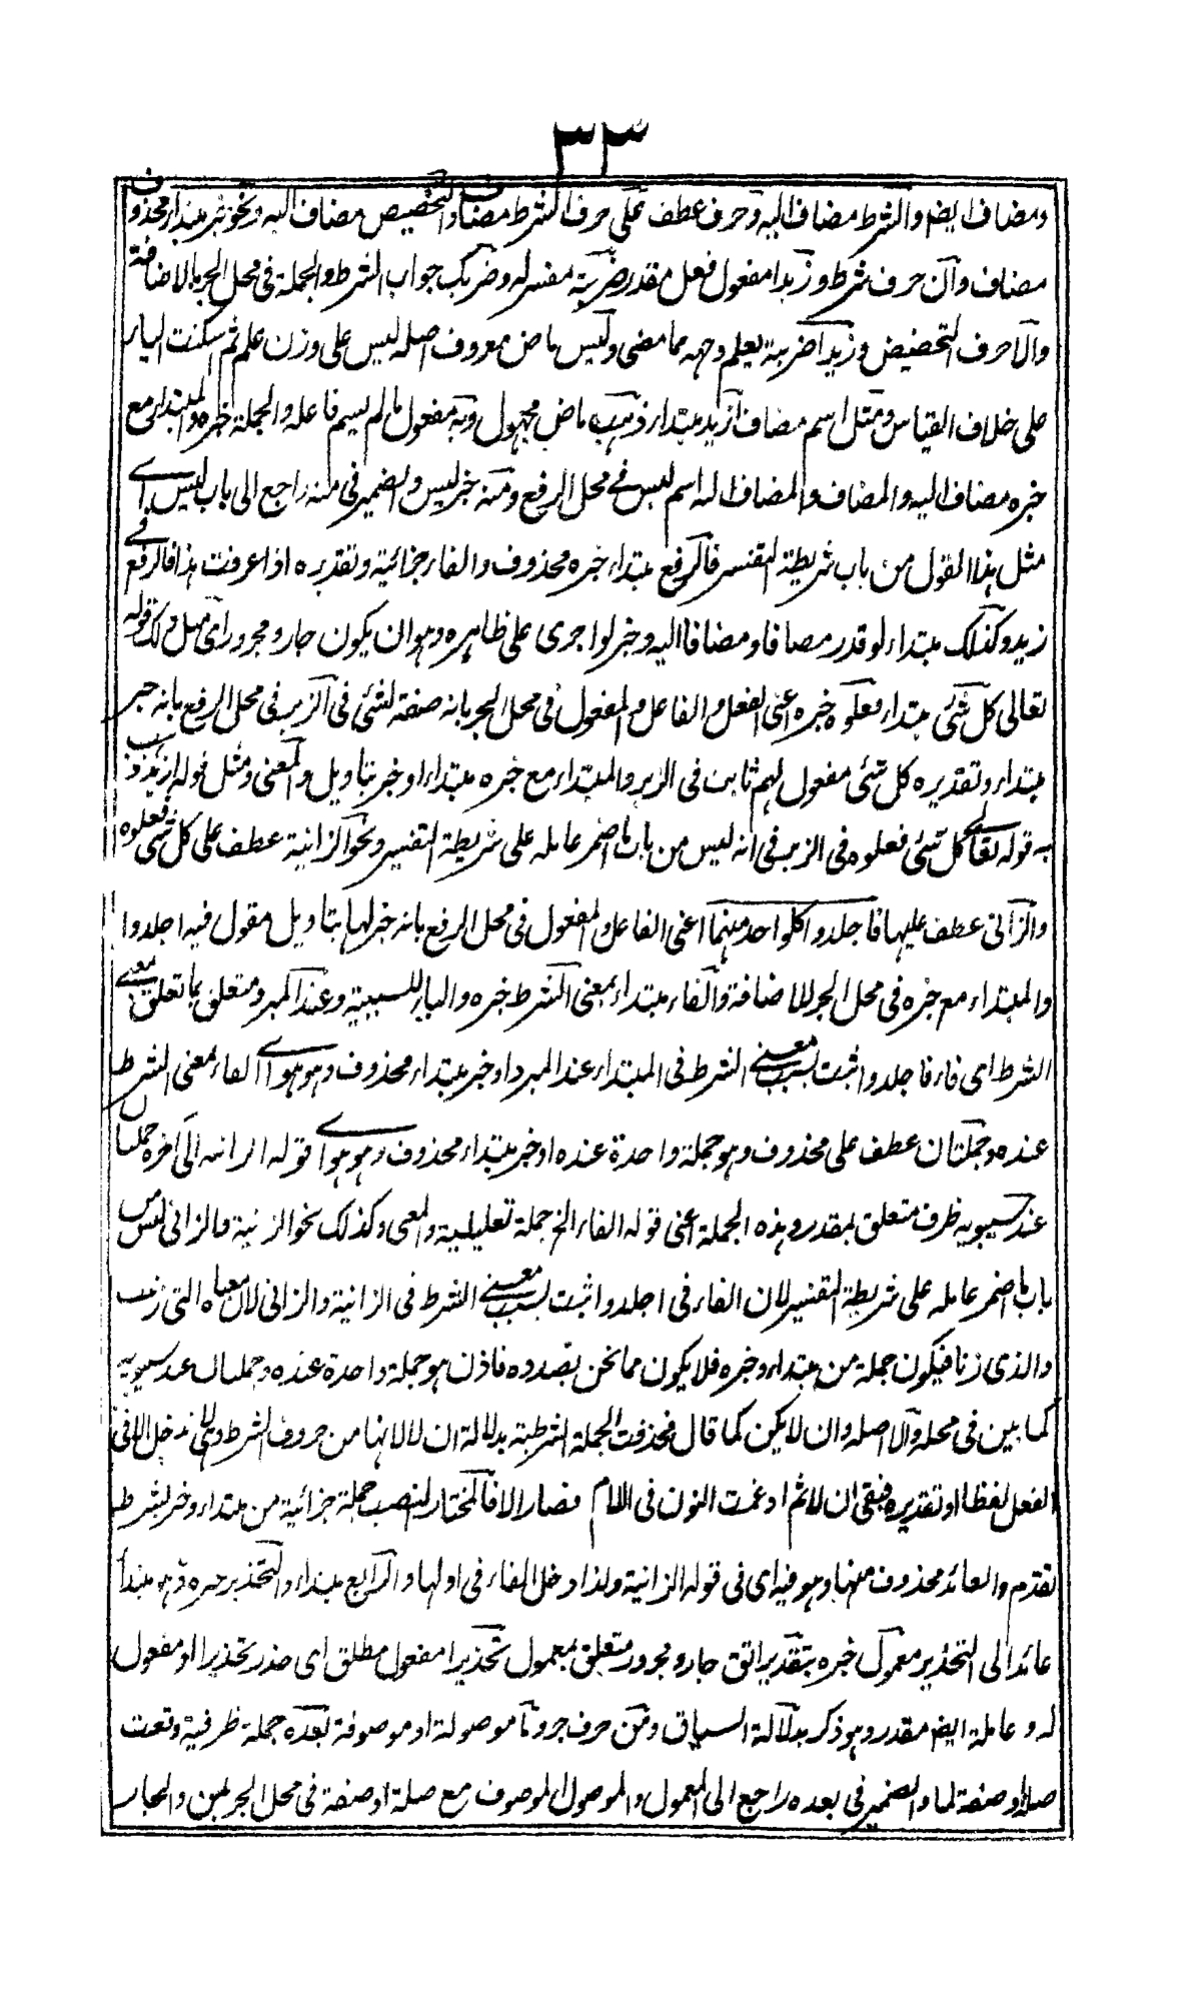 ٣٣
ومضاف ايضا والشرط مضاف اليه وحرف عطف على حرف الشرط مضاف والتحضيض مضاف اليه ونحو خبر مبتداء محذوف
مضاف وان حرف شرط وزيدا مفعول فعل مقدر ضربته مفسر له وضربك جواب الشرط والجملة في محل الجر بالاضافة
والا حرف التحضيض وزيدا ضربته يعلم وجهه مما مضى وليس ماض معروف اصله ليس على وزن علم ثم اسكنت الياء
على خلاف القياس ومثل اسم مضاف ازيد مبتداء ذهب ماض مجهول وبه مفعول مالم يسم فاعله والجملة خبره والمبتداء مع
خبره مضاف اليه والمضاف والمضاف اليه اسم ليس في محل الرفع ومنه خبر ليس والضمير في منه راجع الى باب ليس اي
مثل هذا القول من باب شريطة التفسير فالرفع مبتداء خبره محذوف والفاء جزائية وتقديره اذا عرفت هذا فالرفع في
زيد وكذلك مبتداء لو قدر مضافا ومضافا اليه وخبر لو اجرى على ظاهره وهو ان يكون جار ومجرور اى مثل ذلك قوله
تعالى كل شئ مبتداء فعلوه خبره اعنى الفعل والفاعل والمفعول في محل الجر بانه صفة لشئ في الزبر في محل الرفع بانه خبر
مبتداء وتقديره كل شئ مفعول لهم ثابت في الزبر والمبتداء مع خبره مبتداء او خبر بتاويل والمعنى ومثل قوله ازيد ذهب
به قوله تعالى كل شئ فعلوه في الزبر في انه ليس من باب ما اضمر عامله على شريطة التفسير ونحو الزانية عطف على كل شئ فعلوه
والزاني عطف عليها فاجلدوا كلواحد منهما اعنى الفاعل والمفعول في محل الرفع بانه خبر لها بتاويل مقول فيه اجلدوا
والمبتداء مع خبره في محل الجر للاضافة والفاء مبتداء بمعنى الشرط خبره والباء للسببية وعند المبرد متعلق بما تعلق بمعنى
الشرط اى فاء فاجلدوا ثبت بسبب معنى الشرط في المبتداء عند المبرد او خبر مبتداء محذوف وهو هوا اى الفاء بمعنى الشرط
عنده وجملتان عطف على محذوف وهو جملة واحدة عنده او خبر مبتداء محذوف وهو هو اى قوله الزانية الى آخره جملتان
عند سيبويه ظرف متعلق بمقدر وهذه الجملة اعنى قوله الفاء الخ جملة تعليلية والمعنى وكذلك نحو الزانية والزاني ليس من
باب ما اضمر عامله على شريطة التفسير لان الفاء في اجلدوا ثبت بسبب معنى الشرط في الزانية والزاني لان معناه التى زنت
والذى زنا فيكون جملة من مبتداء وخبره فلا يكون مما نحن بصدده فاذن هو جملة واحدة عنده وجملتان عند سيبويه
كما بين في محله والا اصله وان لا يكن كما قال فحذفت الجملة الشرطية بدلالة ان لا لانها من حروف الشرط وهى لا تدخل الا في
الفعل لفظا او تقديره فبقى ان لا ثم ادغمت النون في اللام فصار الا فالمختار النصب جملة جزائية من مبتداء وخبر لشرط
تقدم والعائد محذوف منها وهو فيه اى في قوله الزانية ولذا دخل الفاء في اولها والرابع مبتداء والتحذير خبره وهو مبتدأ
عائد الى التحذير معمول خبره بتقدير اتق جار ومجرور متعلق بمعمول تحذيرا مفعول مطلق اى حذر تحذيرا او مفعول
له وعامله ايضا مقدر وهو ذكر بدلالة السياق ومن حرف جر وما موصولة او موصوفة بعده جملة ظرفية وقعت
صلة او صفة لما والضمير في بعده راجع الى المعمول والموصول الموصوف مع صلة او صفة في محل الجر لمن والجار